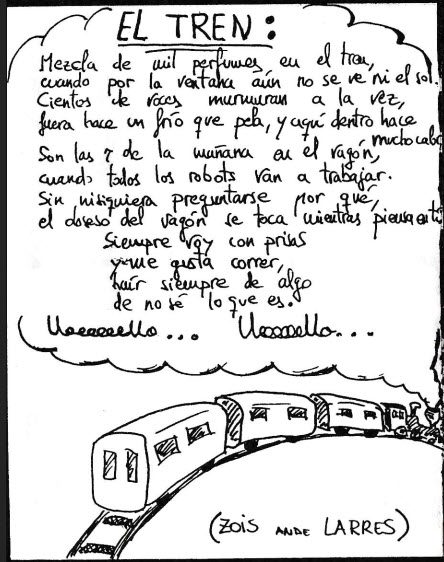 EL TREN:
Mezcla de mil perfumes en el tren,
cuando por la ventana aún no se ve ni el sol.
Cientos de voces murmuran a la vez,
fuera hace un frío que pela, y aquí dentro hace
mucho calor
Son las 7 de la mañana en el vagón,
cuando todos los robots van a trabajar.
Sin nisiquiera preguntarse por qué,
el del vagón se toca mientras piensa en tí
Siempre voy con prisas
y me gusta correr,
huir siempre de algo
de no sé lo que es.
(ZOIS ANDE LARRES)